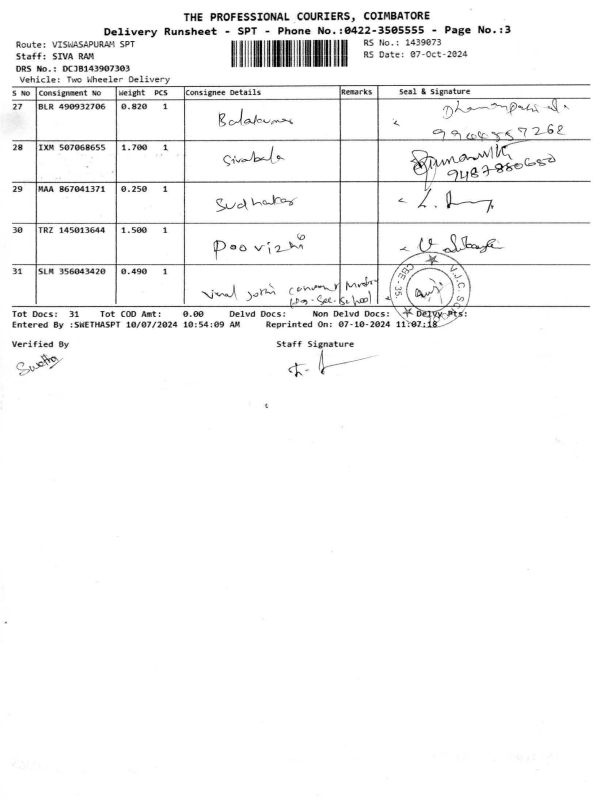 THE PROFESSIONAL COURIERS, COIMBATORE
Delivery Runsheet - SPT - Phone No.:0422-3505555 - Page No.:3
Route: VISWASAPURAM SPT RS No.: 1439073
Staff: SIVA RAM RS Date: 07-Oct-2024
DRS No.: DCJB143907303
Vehicle: Two Wheeler Delivery
S No Consignment No Weight PCS Consignee Details Remarks Seal & Signature
27 BLR 490932706 0.820 1 Balakumar
28 IXM 507068655 1.700 1 Sivabala
9487880680
29 MAA 867041371 0.250 1 Sudhakar
30 TRZ 145013644 1.500 1 Poovizhi
31 SLM 356043420 0.490 1 Convent
Hr. Sec. School
V.J.C. CBE-35.
Tot Docs: 31 Tot COD Amt: 0.00 Delvd Docs: Non Delvd Docs: Delvy Pts:
Entered By :SWETHASPT 10/07/2024 10:54:09 AM Reprinted On: 07-10-2024 11:07:18
Verified By Staff Signature
Swetha